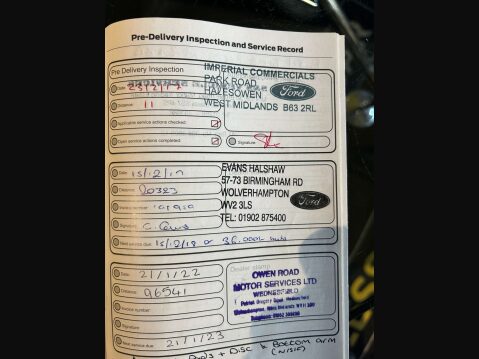 Pre-Delivery Inspection and Service Record
Pre Delivery Inspection
Date: 23/2/17
Distance: 11
Applicable service actions checked:
Open service actions completed:
Signature
IMPERIAL COMMERCIALS
PARK ROAD
HALESOWEN
WEST MIDLANDS B63 2RL
Ford
Date: 15/12/17
Distance:
Invoice number:
Signature:
Next service due: 15/12/18 or 36,000
EVANS HALSHAW
57-73 BIRMINGHAM RD
WOLVERHAMPTON
WV2 3LS
TEL: 01902 875400
Ford
Date: 21/1/22
Distance: 96541
Invoice number:
Signature
Next service due: 21/1/23
Dealer stamp
OWEN ROAD
MOTOR SERVICES LTD
WEDNESFIELD
Pads + Disc & Bottom arm
(N/S/F)